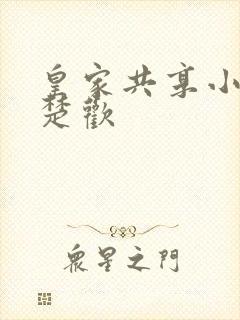 皇家共享小
楚歡
眾星之門